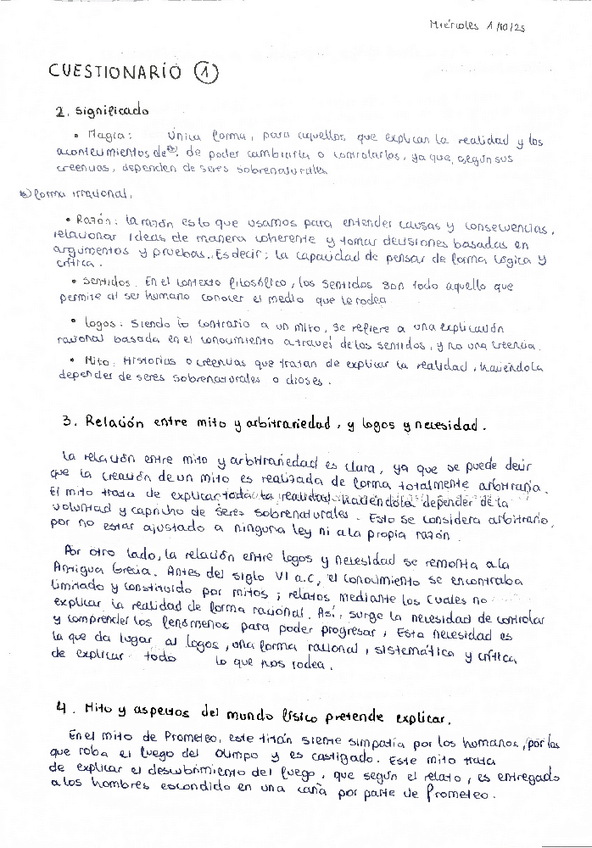 Miércoles 1/10/25
CUESTIONARIO 1
2. Significado
• Magia: única forma, para aquellos, que explican la realidad y los
acontecimientos de, de poder cambiarla o controlarlos, ya que, según sus
creencias, dependen de seres sobrenaturales.
forma irracional.
• Razón: la razón es lo que usamos para entender causas y consecuencias,
relacionar ideas de manera coherente y tomar decisiones basadas en
argumentos y pruebas. Es decir; la capacidad de pensar de forma lógica y
crítica.
• Sentidos. En el contexto filosófico, los sentidos son todo aquello que
permite al ser humano conocer el medio que le rodea
• Logos: Siendo lo contrario a un mito, se refiere a una explicación
racional basada en el conocimiento a través de los sentidos, y no una creencia.
• Mito: Historias o creencias que tratan de explicar la realidad, haciéndola
depender de seres sobrenaturales o dioses.
3. Relación entre mito y arbitrariedad, y logos y necesidad.
La relación entre mito y arbitrariedad es clara, ya que se puede decir
que la creación de un mito es realizada de forma totalmente arbitraria.
El mito trata de explicar toda la realidad haciéndola depender de la
voluntad y capricho de seres sobrenaturales. Esto se considera arbitrario,
por no estar ajustado a ninguna ley ni a la propia razón.
Por otro lado, la relación entre logos y necesidad se remonta a la
Antigua Grecia. Antes del siglo VI a.C, el conocimiento se encontraba
limitado y constituido por mitos; relatos mediante los cuales no
explicar la realidad de forma racional. Así, surge la necesidad de controlar
y comprender los fenómenos para poder progresar, Esta necesidad es
la que da lugar al logos, una forma racional, sistemática y crítica
de explicar todo lo que nos rodea.
4. Mito y aspectos del mundo físico pretende explicar.
En el mito de Prometeo, este titán siente simpatía por los humanos, por los
que roba el fuego del Olimpo y es castigado. Este mito trata
de explicar el descubrimiento del fuego, que según el relato, es entregado
a los hombres escondido en una caña por parte de Prometeo.